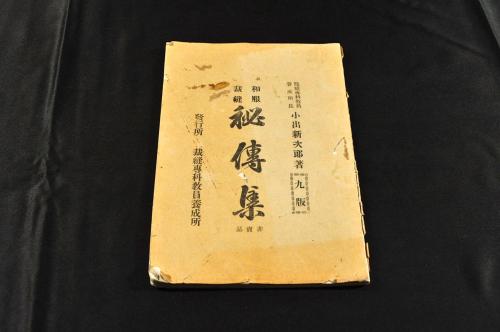 裁縫專科教員
養成所長 小出新次郎著
九版
和服
裁縫
秘傳集
非賣品
發行所 裁縫專科教員養成所